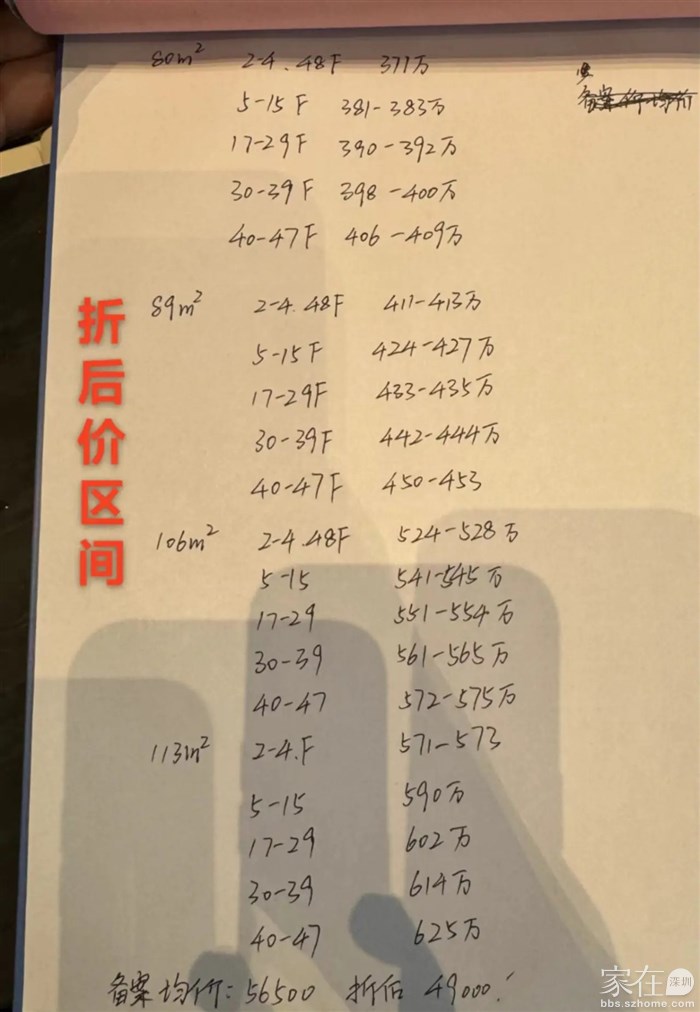 80m² 2-4.48F 371万
备案价均价
5-15F 381-383万
17-29F 390-392万
30-39F 398-400万
40-47F 406-409万
折后价区间
89m² 2-4.48F 411-413万
5-15F 424-427万
17-29F 433-435万
30-39F 442-444万
40-47F 450-453
106m² 2-4.48F 524-528万
5-15 541-545万
17-29 551-554万
30-39 561-565万
40-47 572-575万
113m² 2-4.F 571-573
5-15 590万
17-29 602万
30-39 614万
40-47 625万
备案均价:56500 折后 49000!
家在 深圳
bbs.szhome.com